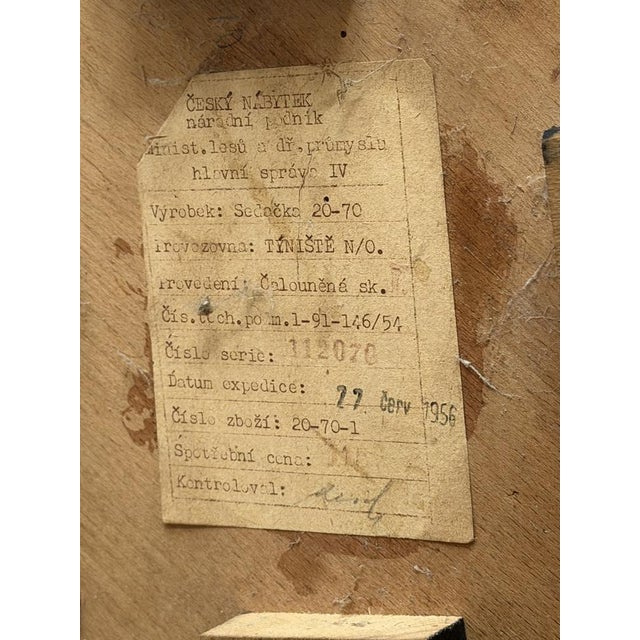 ČESKÝ NÁBYTEK
národní podnik
minist.lesů a dř.průmyslu
hlavní správa IV
Výrobek: Sedačka 20-70
Provozovna: TÝNIŠTĚ N/O.
Provedení: Čalouněná sk.
Čís.tech.podm.1-91-146/54
Číslo serie: 112070
Datum expedice: 22 červ 1956
Číslo zboží: 20-70-1
Spotřební cena:
Kontroloval: